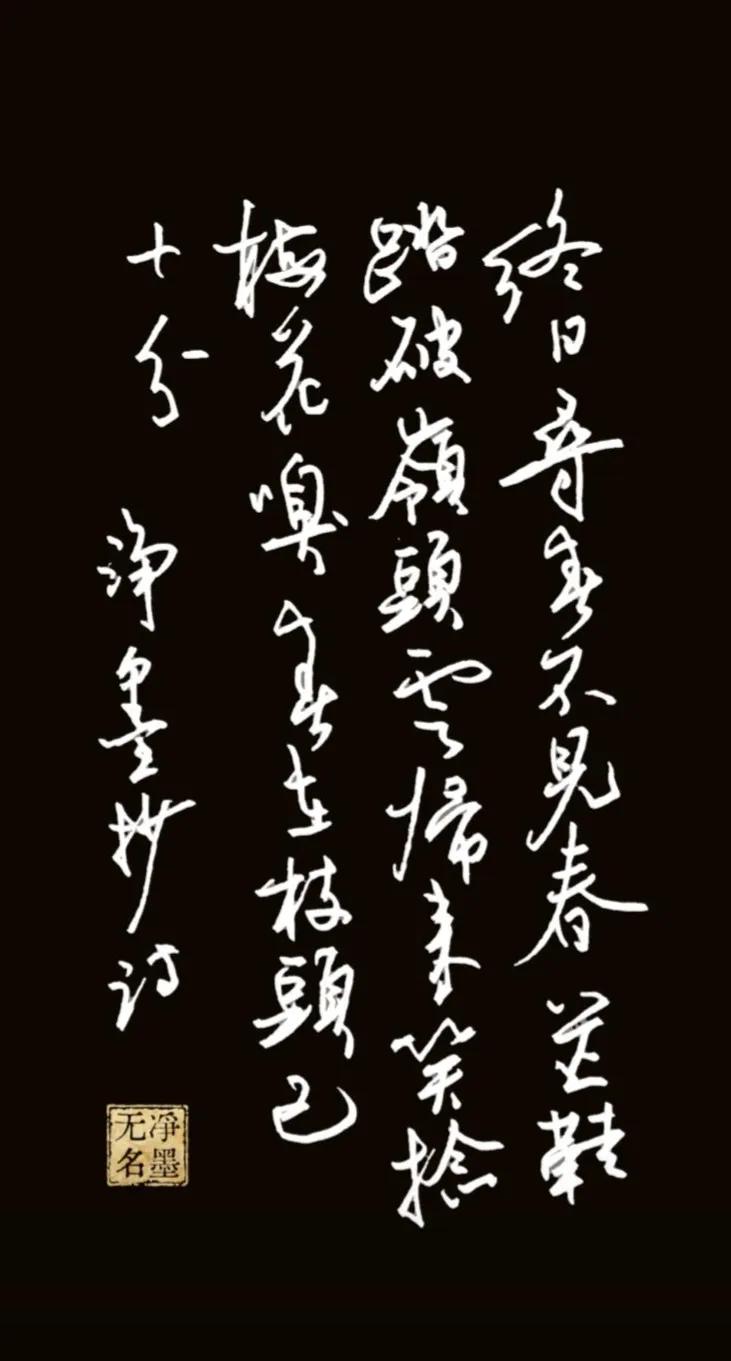 終日尋春不見春芒鞋
踏破嶺頭雲歸来笑捻
梅花嗅春在枝頭已
十分
淨墨抄詩
净墨
无名